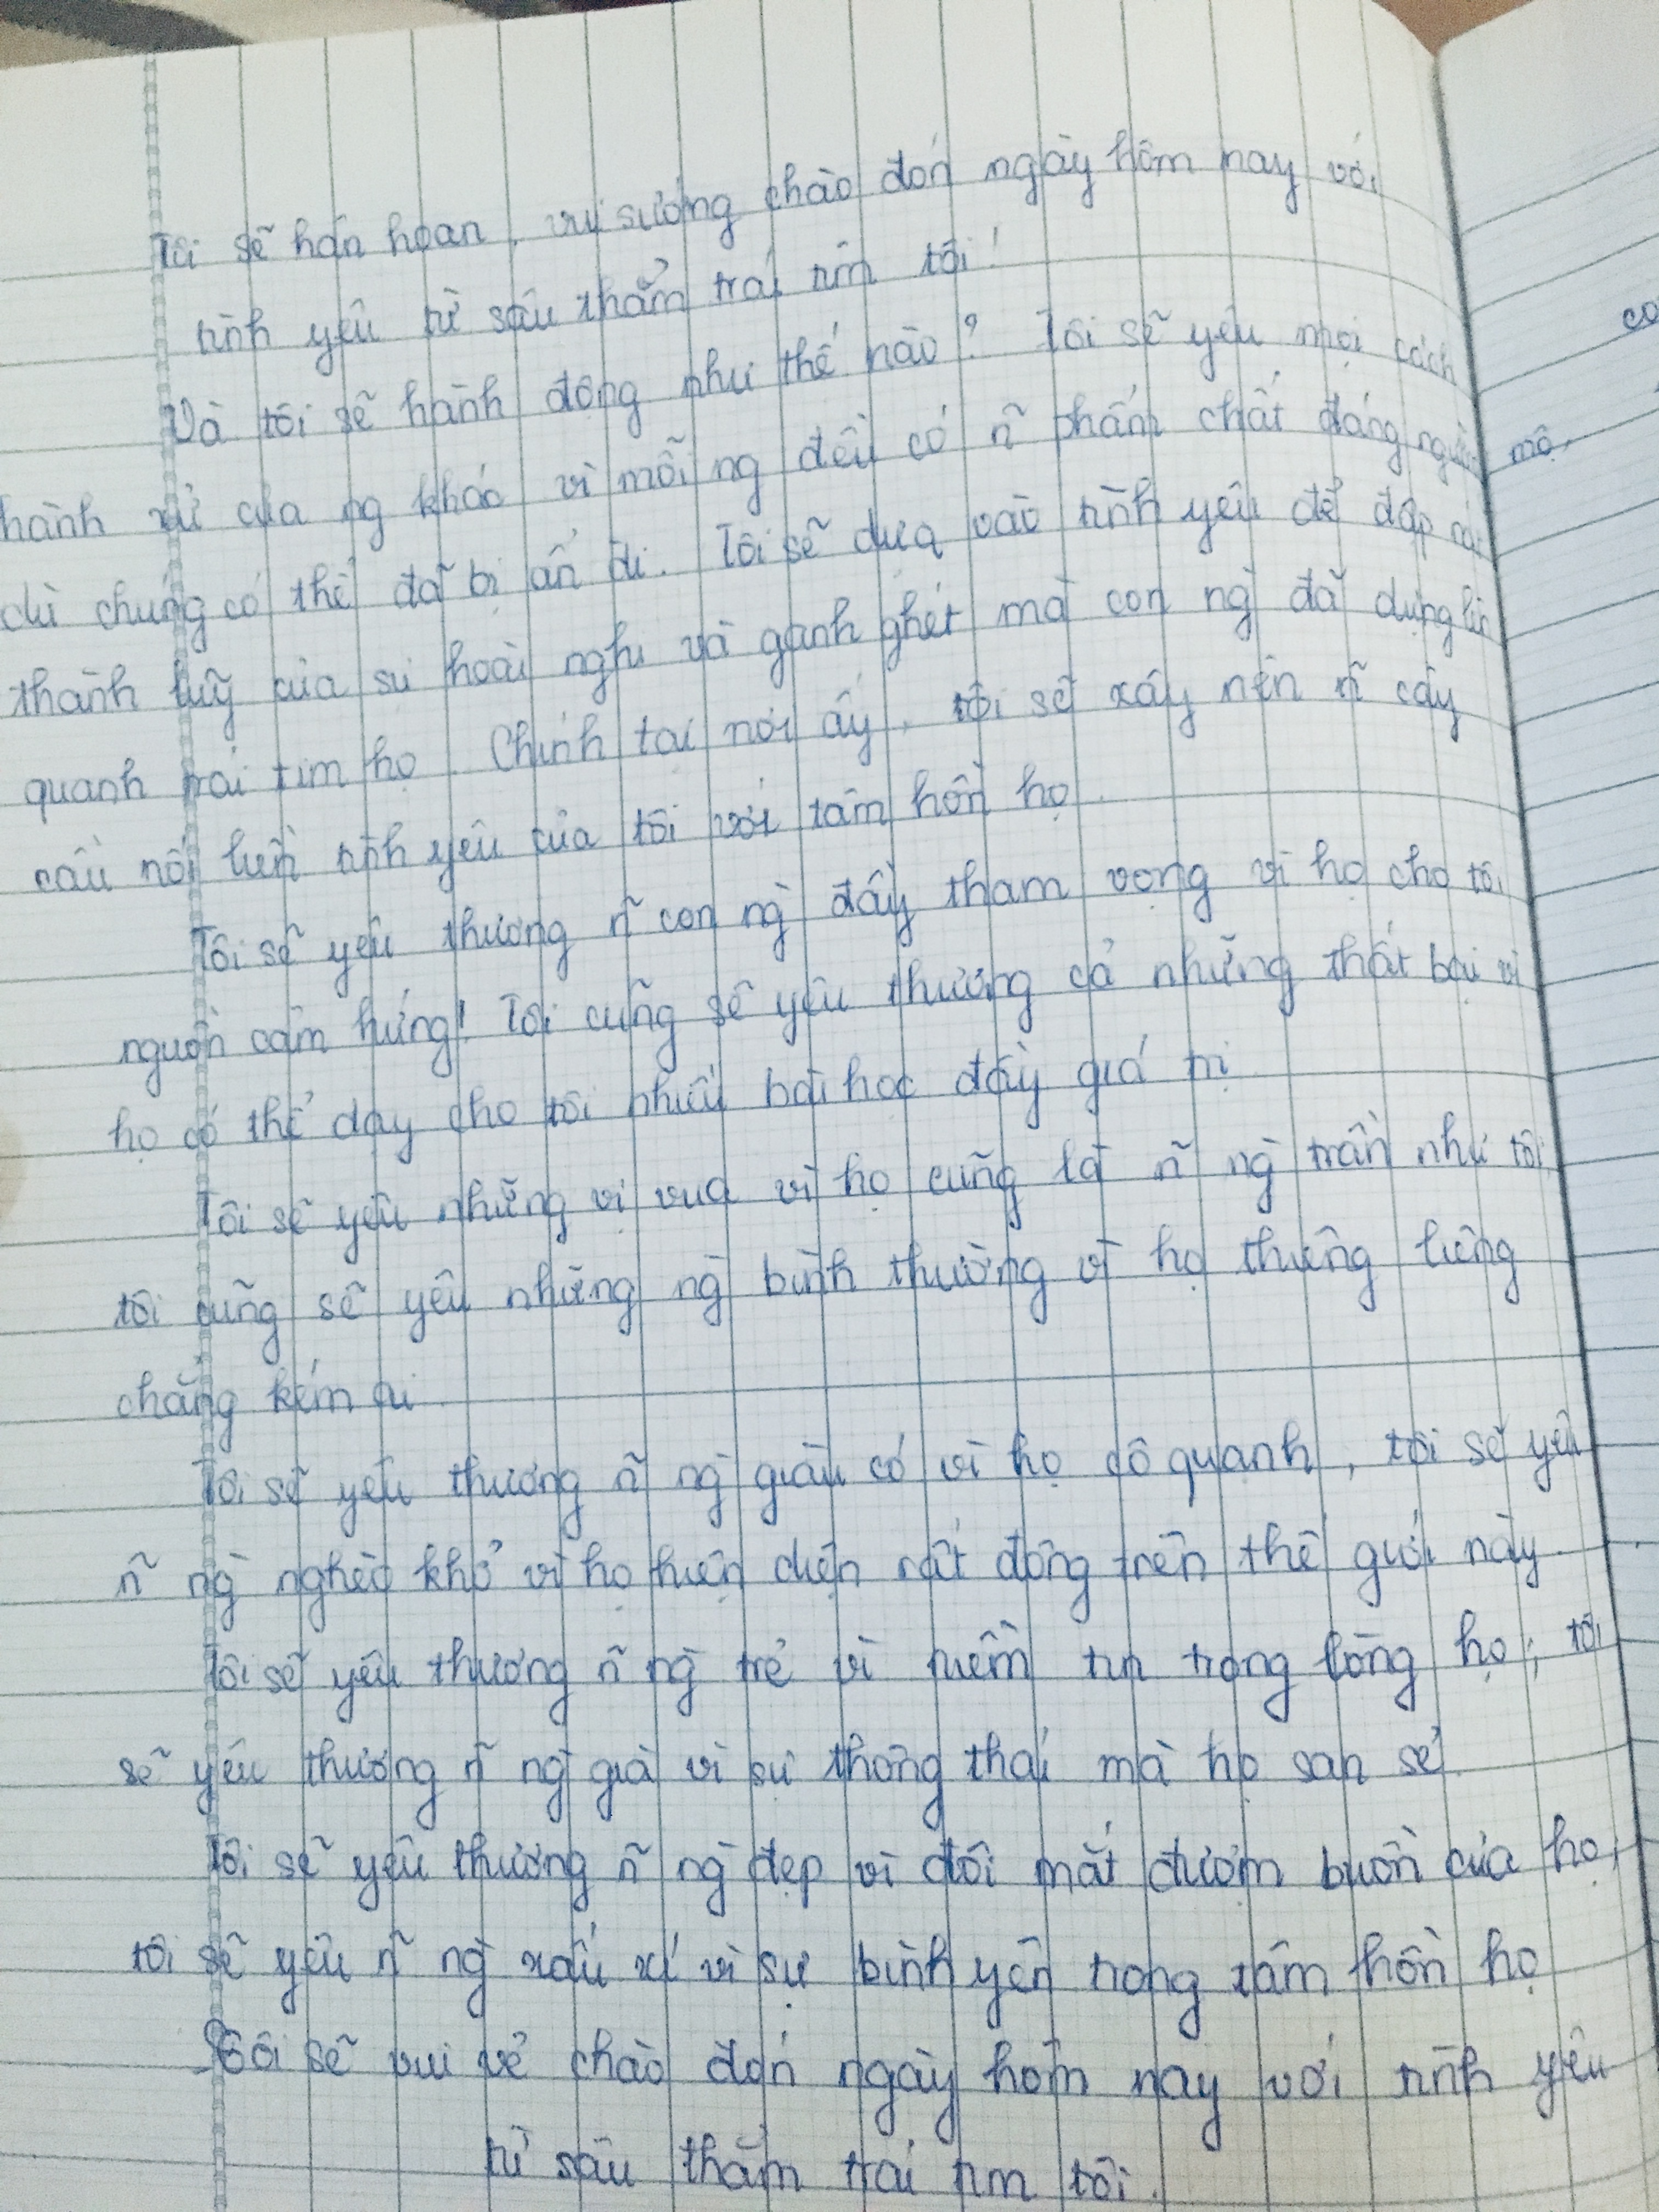 Tôi sẽ hán hoan, vui sướng chào đón ngày hôm nay với
tình yêu từ sâu thẳm trái tim tôi!
Và tôi sẽ hành động như thế nào? Tôi sẽ yêu mọi cách
hành xử của ng khác vì mỗi ng đều có ñ phẩm chất đáng
dù chúng có thể đã bị ẩn đi. Tôi sẽ dựa vào tình yêu để đập
thành luỹ của sự hoài nghi và ganh ghét mà con ng đã dựng lên
quanh trái tim họ. Chính tại nơi ấy, tôi sẽ xây nên ñ cây
cầu nối liền tình yêu của tôi với tâm hồn họ.
Tôi sẽ yêu thương ñ con ng đầy tham vọng vì họ cho tôi
nguồn cảm hứng! Tôi cũng sẽ yêu thương cả những thất bại vì
họ có thể dạy cho tôi nhiều bài học đầy giá trị
Tôi sẽ yêu những vị vua vì họ cũng là ñ ng trần như tôi
tôi cũng sẽ yêu những ng bình thường vì họ thiêng liêng
chẳng kém ai.
Tôi sẽ yêu thương ñ ng giàu có vì họ cô quạnh, tôi sẽ yêu
ñ ng nghèo khổ vì họ hiện diện rất đông trên thế giới này.
Tôi sẽ yêu thương ñ ng trẻ vì niềm tin trong lòng họ; tôi
sẽ yêu thương ñ ng già vì sự thông thái mà họ san sẻ.
Tôi sẽ yêu thương ñ ng đẹp vì đôi mắt đượm buồn của họ;
tôi sẽ yêu ñ ng xấu xí vì sự bình yên trong tâm hồn họ
Tôi sẽ vui vẻ chào đón ngày hôm nay với tình yêu
từ sâu thẳm trái tim tôi.